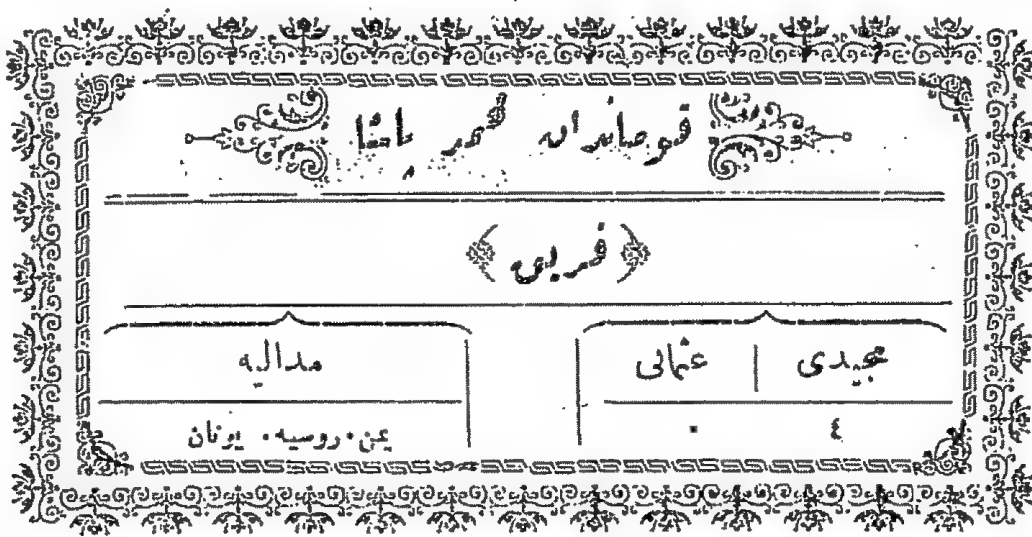 قوماندان عمر پاشا
﴿ فريق ﴾
مجيدى | عثمانى
مداليه
٤
٠
يمن. روسيه. يونان